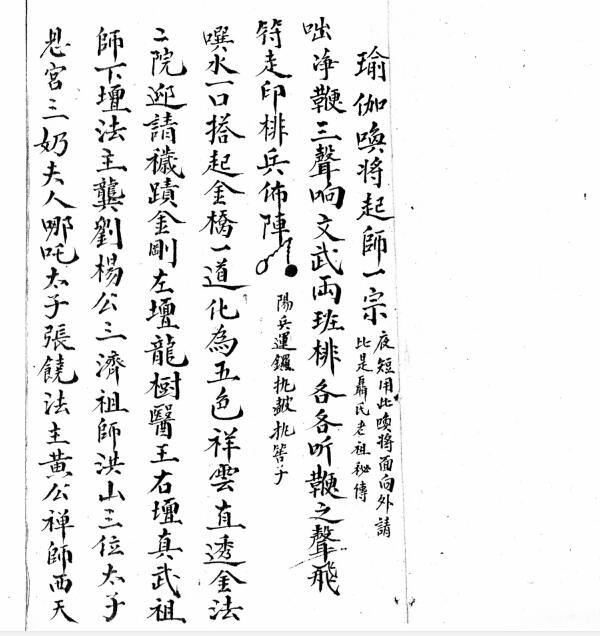 瑜伽喚将起師一宗
夜短用此喚将面向外請
比是聶氏老祖秘傳
咄净鞭三聲响文武両班排各各听鞭之聲飛
符走印排兵佈陣
陽兵運鑼扎皷扎筶子
噀水一口搭起金橋一道化為五色祥雲直透金法
二院迎請穢蹟金剛左壇龍樹醫王右壇真武祖
師下壇法主龔劉楊公三濟祖師洪山三位太子
宫三奶夫人哪吒太子張饒法主黄公禅師西天